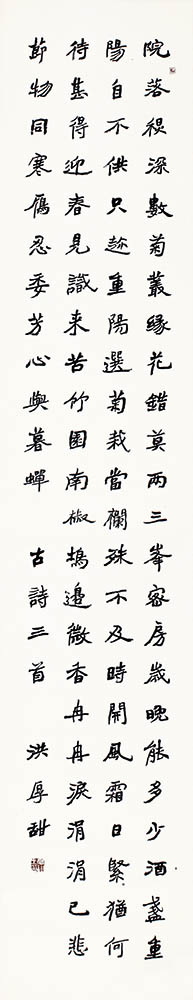 院落秋深數菊叢緣花錯莫兩三峯密房歲晚能多少酒盞重
陽自不供只趁重陽選菊栽當欄殊不及時開風霜日緊猶何
待甚得迎春見識来苦竹園南椒塢邊微香冉冉淚涓涓已悲
節物同寒鴈忍委芳心與暮蟬 古詩三首 洪厚甜